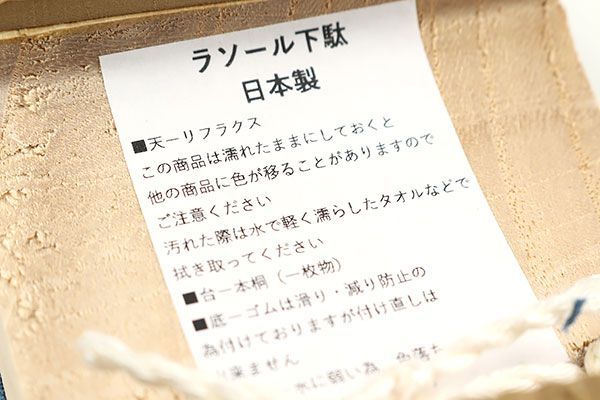 ラソール下駄
日本製
■天ーリフラクス
この商品は濡れたままにしておくと
他の商品に色が移ることがありますので
ご注意ください
汚れた際は水で軽く濡らしたタオルなどで
拭き取ってください
■台ー本桐（一枚物）
■底ーゴムは滑り・減り防止の
為付けておりますが付け直しは
来ません
水に弱い為